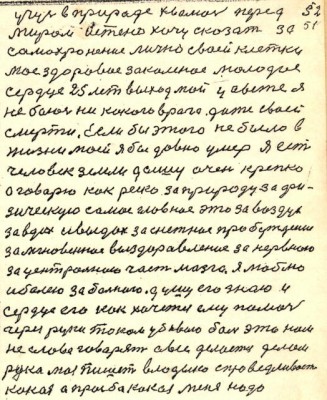 учил в природе хвалюсь перед 52
миром истено хочу сказат за 51
самохронение лично своей клетки
мое здоровие закалное молодое
сердце 25 лет выход мой у свете я
не боюся ни какого врага дате своей
смерти. Если бы этого не было в
жизни моей я бы довно умер Я ест
человек земли дышу очен крепко
а говарю как реско за природу за фи-
зическую самое главное это за воздух
за вдох и выдох за снегное пробуждение
за мгновенное выздаравление за нервного
за центрального част мозга. Я люблю
и болею за болного. душу его знаю и
сердце его как хочется ему помоч
через руки током убеваю бол это нам
не слова говарят свое делаетя делом
рука моя пишет владыко справедливост
какая а прозба какая меня надо